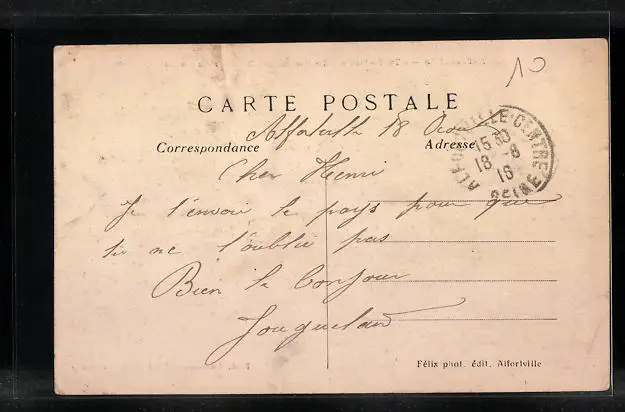 10
CARTE POSTALE
Alfortville 18 Aout
Correspondance
Adresse
ALFORTVILLE-CENTRE
15 30
18 - 8
16
SEINE
Cher Henri
Je t'envoie le pays pour que
tu ne l'oublie pas
Bien le bonjour
Félix phot. édit. Alfortville